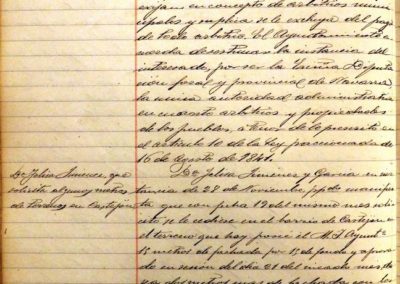 exijan en concepto de arbitrios muni-
cipales y suplica se le excluya del pago
de todo arbitrio. El Ayuntamiento a-
cuerda desestimar la instancia del
interesado, por ser la Excma Diputa-
ción foral y provincial de Navarra
la única autoridad administrativa
en cuanto arbitrios y propiedades
de los pueblos, a tenor de lo prescrito en
el artículo 10 de la Ley paccionada de
16 de Agosto de 1841.
Dª Felisa Jimenez, que
solicita algunos metros
de terreno en Castejón
Dª Felisa Jimenez y García en ins-
tancia de 28 de Noviembre, ppdo manifies-
ta que con fecha 12 del mismo mes soli-
citó se le cediese en el barrio de Castejón
el terreno que hoy posee el M. I. Ayuntº
15 metros de fachada por 15 de fondo y aproba-
do en sesion del dia 21 del citado mes, de-